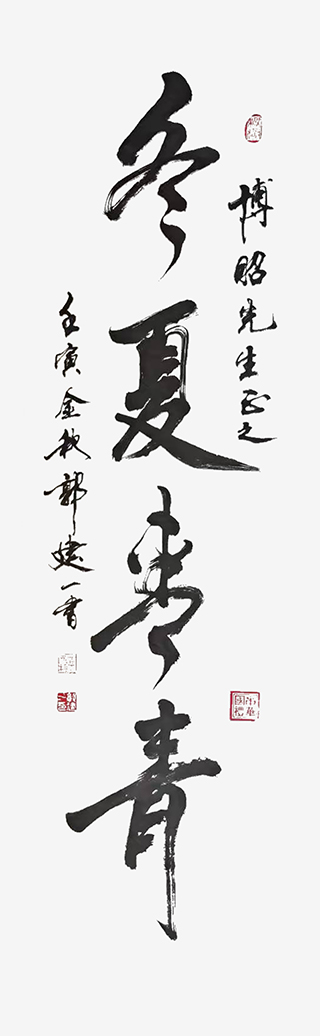 博昭先生正之
冬夏青青
壬寅金秋郭建一書